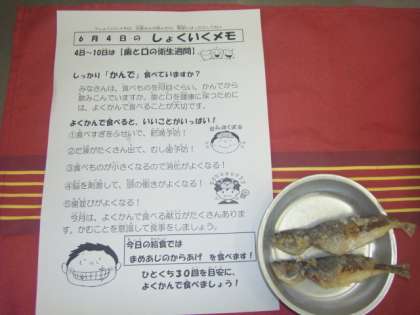 6月4日の しょくいくメモ
4日～10日は【歯と口の衛生週間】
しっかり「かんで」食べていますか?
みなさんは、食べものを何回ぐらい、かんでから
飲みこんでいますか。歯と口を健康に保つために
は、よくかんで食べることが大切です。
よくかんで食べると、いいことがいっぱい!
①食べすぎをふせいで、肥満予防!
②だ液がたくさん出て、むし歯予防!
③食べものが小さくなるので消化がよくなる!
④脳を刺激して、頭の働きがよくなる!
⑤歯並びがよくなる!
今月は、よくかんで食べる献立がたくさんありま
す。かむことを意識して食事をしましょう。
今日の給食では
まめあじのからあげ を食べます!
ひとくち30回を目安に、
よくかんで食べましょう!